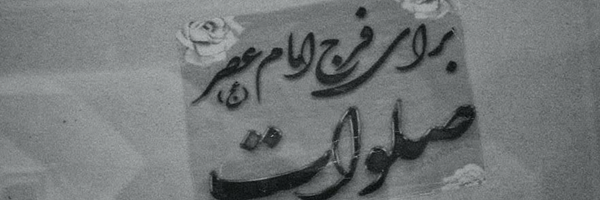 برای فرج امام عصر (عج)
صلوات